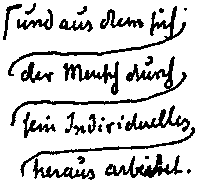 und aus dem sich
der Mensch durch
sein Individuelles
heraus arbeitet.